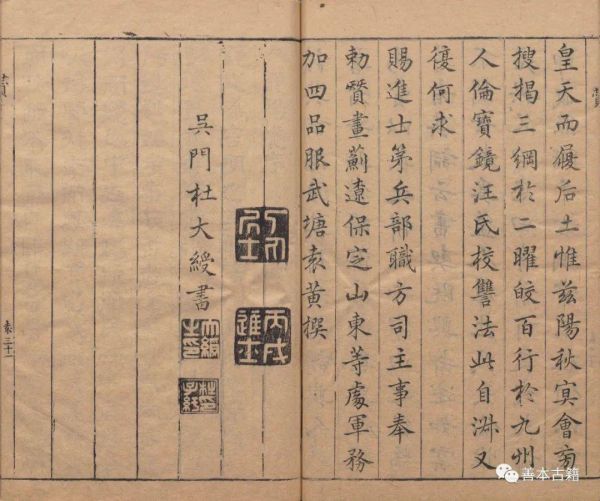 贊
皇天而履后土惟兹陽秋㝠會旁
搜揭三綱於二曜皎百行於九州
人倫寶鏡汪氏校讐法此自淑又
復何求
賜進士第兵部職方司主事奉
勑贊畫薊遼保定山東等處軍務
加四品服武塘袁黃撰
丙戌進士
吳門杜大綬書
贊
善本古籍